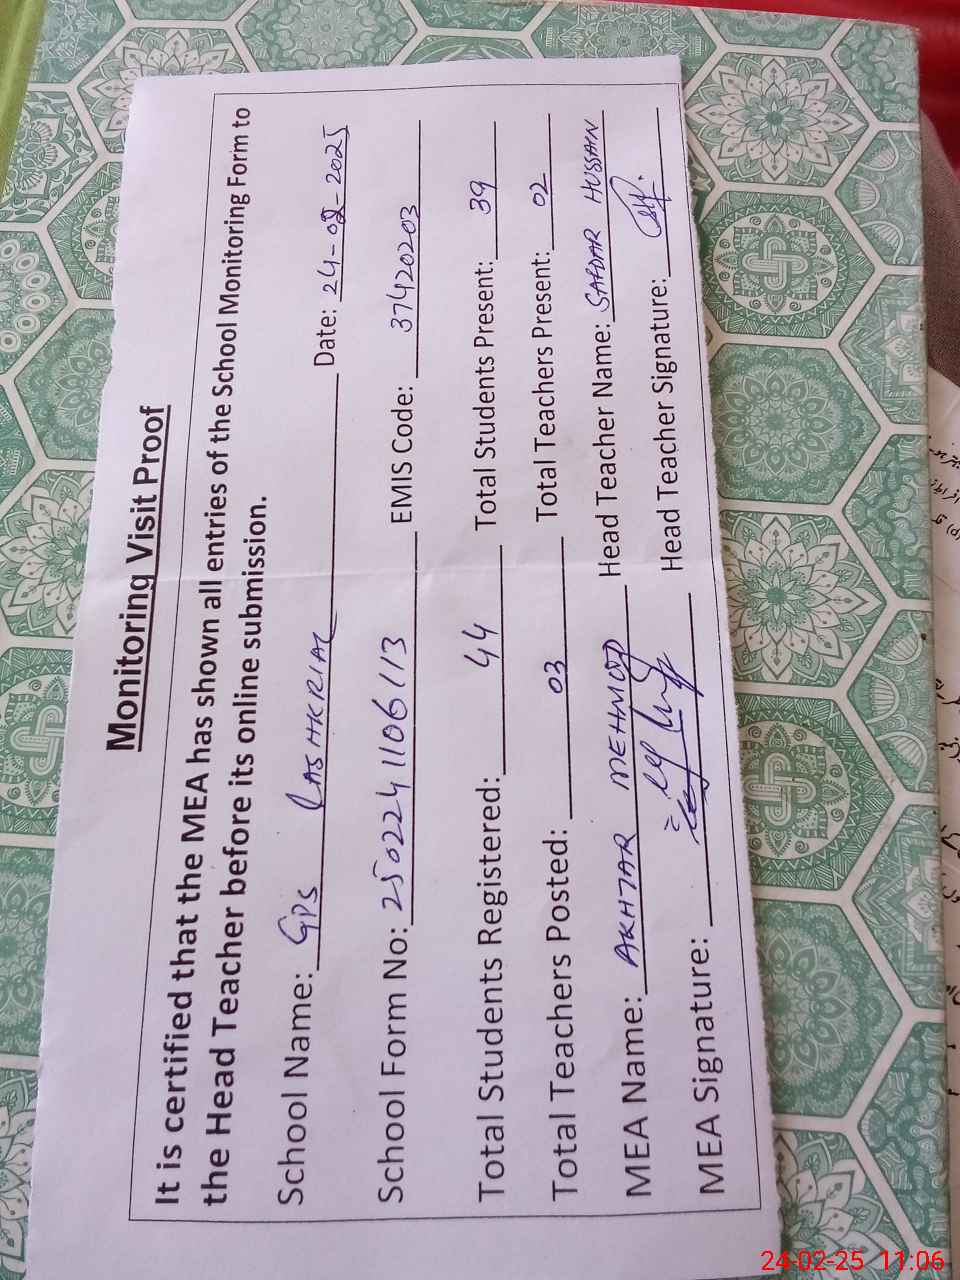 Monitoring Visit Proof
It is certified that the MEA has shown all entries of the School Monitoring Form to
the Head Teacher before its online submission.
School Name: GPS LASHKRIAL Date: 24-02-2025
School Form No: 2502241106113 EMIS Code: 37420203
Total Students Registered: 44 Total Students Present: 39
Total Teachers Posted: 03 Total Teachers Present: 02
MEA Name: AKHTAR MEHMOOD Head Teacher Name: SAFDAR HUSSAIN
MEA Signature: Head Teacher Signature:
24-02-25 11:06